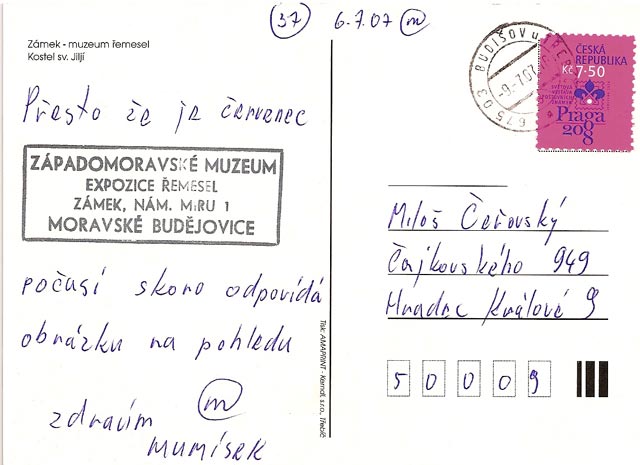 37 6.7.07 m
Zámek - muzeum řemesel
Kostel sv. Jiljí
Přesto že je červenec
ZÁPADOMORAVSKÉ MUZEUM
EXPOZICE ŘEMESEL
ZÁMEK, NÁM. MÍRU 1
MORAVSKÉ BUDĚJOVICE
počasí skoro odpovídá
obrázku na pohledu
m
zdravím
mumísek
Tisk: AMAPRINT - Kerndl, s.r.o., Třebíč
BUDIŠOV u TŘEB
-9.-7.07
675 03
ČESKÁ
REPUBLIKA
Kč 7·50
SVĚTOVÁ
VÝSTAVA
POŠTOVNÍCH
ZNÁMEK
Praga
2008
Miloš Čeřovský
Čajkovského 949
Hradec Králové 9
5 0 0 0 9